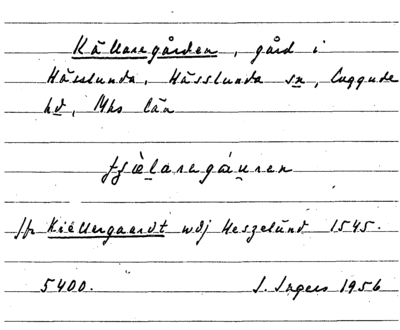 Källaregården, gård i
Hässlunda, Hässlunda sn, Luggude
hd, Mhs län
fʃèlaregáu̱ren
Jfr Kiellergaardt wdj Heszelund 1545.
5400.
I. Ingers 1956